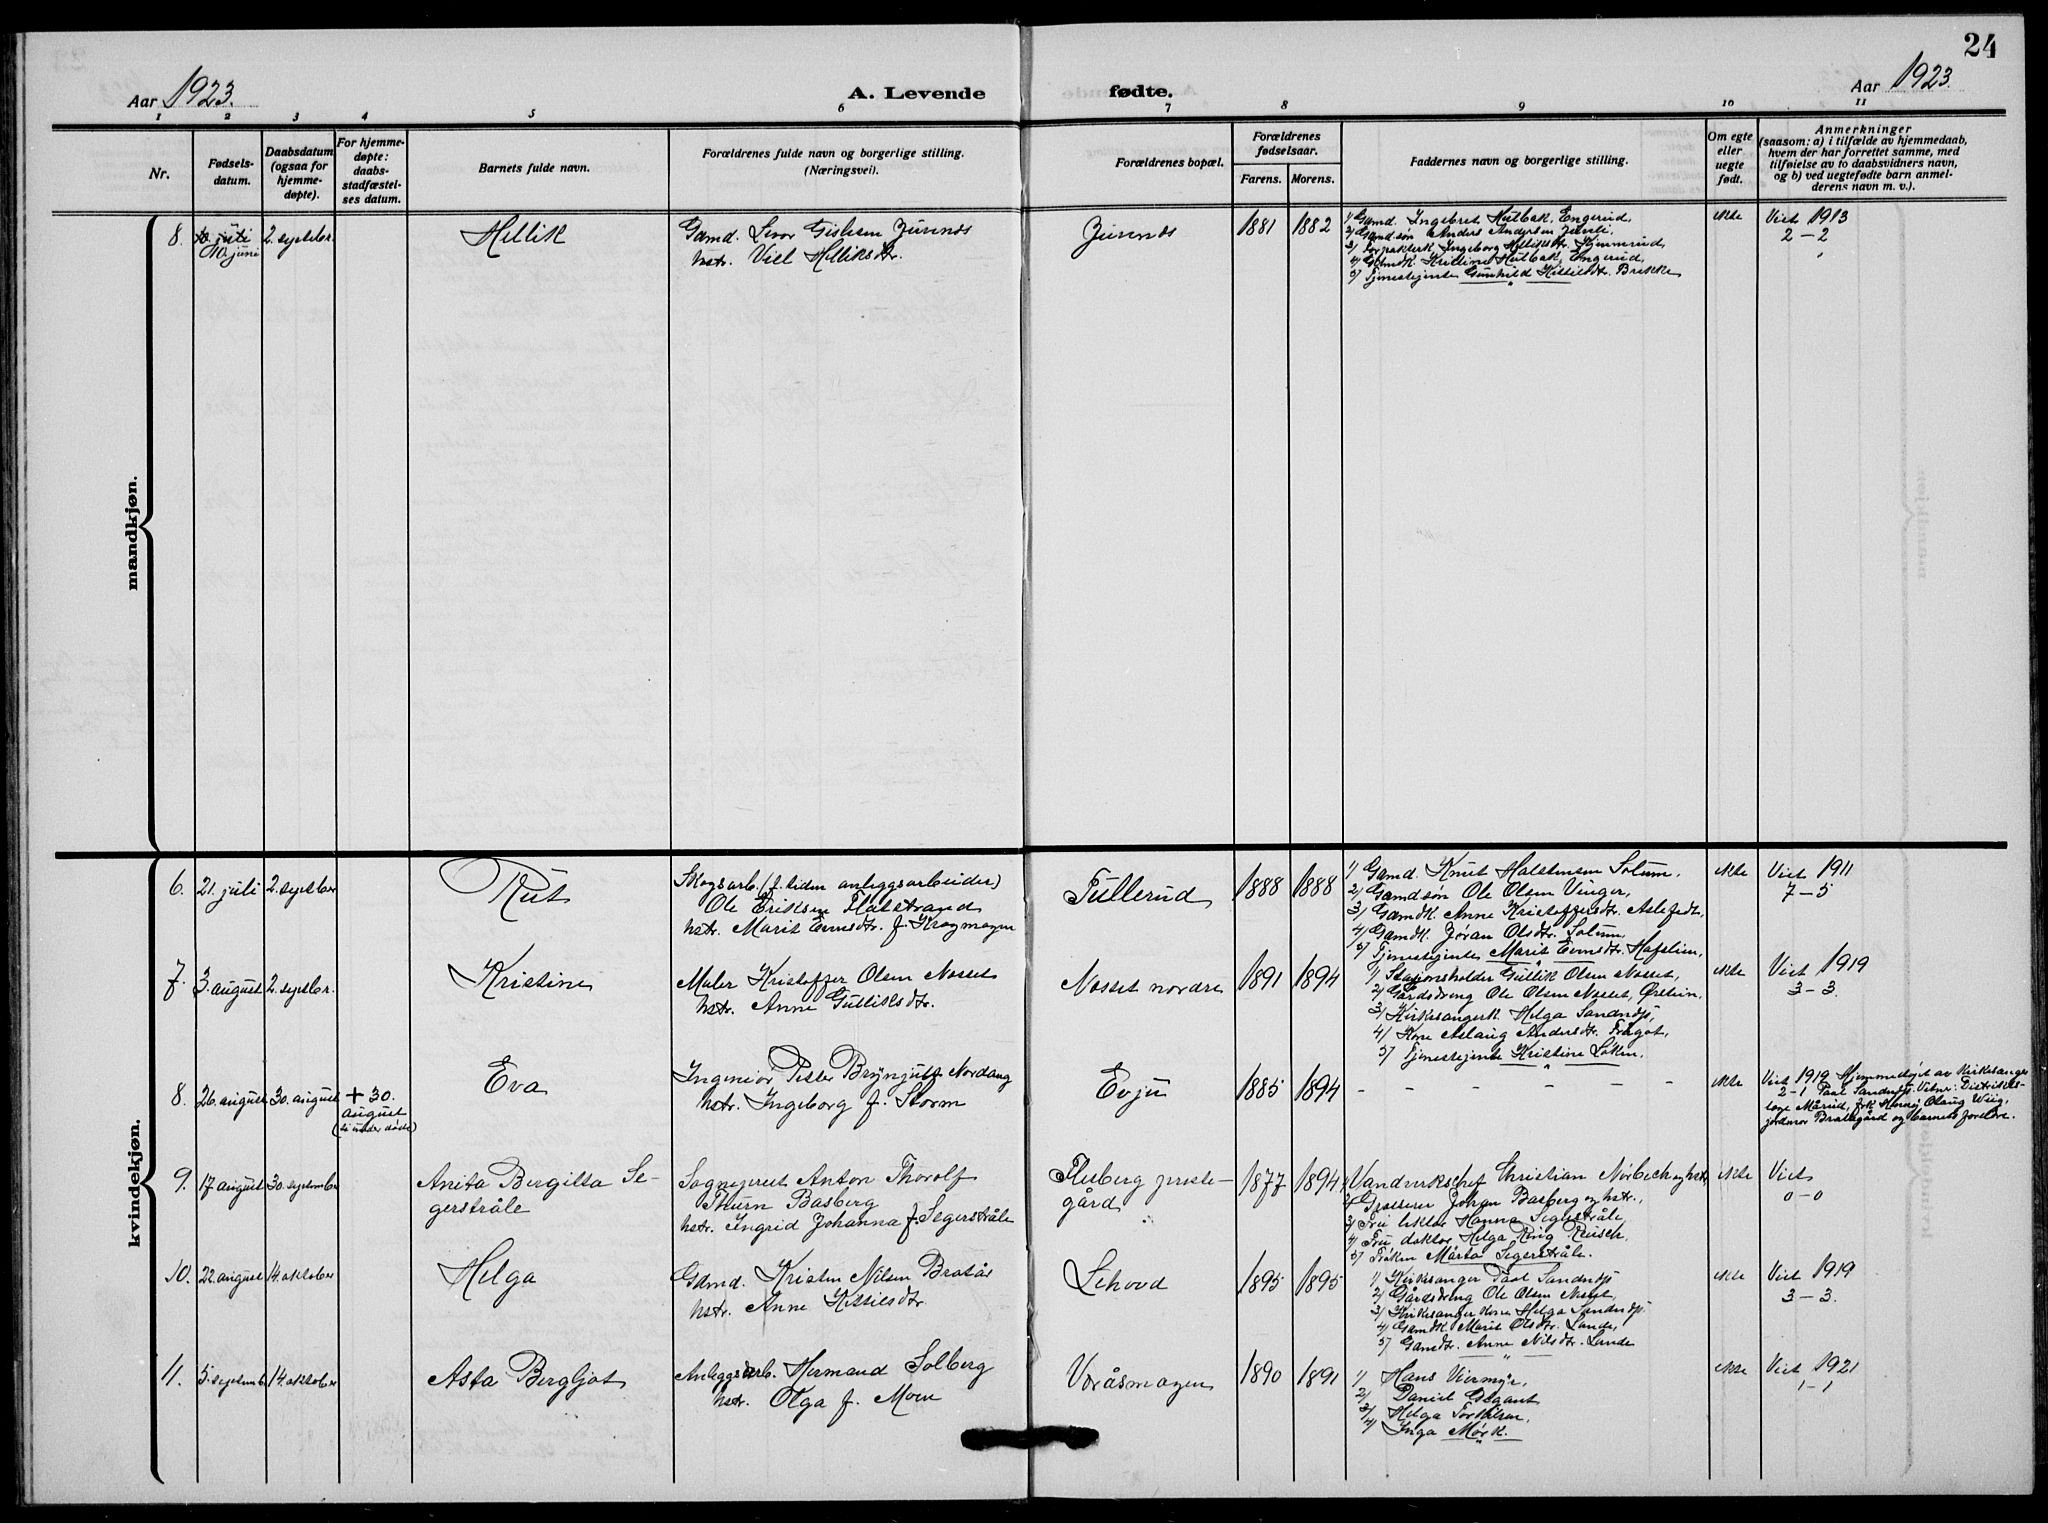 24
Aar 1923.
A. Levende
fødte.
Aar 1923.
1 2 3 4 5 6 7 8 9 10 11
Nr.
Fødsels-
datum.
Daabsdatum
(ogsaa for
hjemme-
døpte).
For hjemme-
døpte:
daabs-
stadfæstel-
ses datum.
Barnets fulde navn.
Forældrenes fulde navn og borgerlige stilling.
(Næringsvei).
Forældrenes bopæl.
Forældrenes
fødselsaar.
Farens. Morens.
Faddernes navn og borgerlige stilling.
Om egte
eller
uegte
født.
Anmerkninger
(saasom: a) i tilfælde av hjemmedaab,
hvem der har forrettet samme, med
tilføielse av to daabsvidners navn,
og b) ved uegtefødte barn anmel-
derens navn m. v.).
mandkjøn.
8.
10. juni
2. septbr.
Hellik
Gdmd.
hstr. Helliksdtr.
1881
1882
1) Gdmd. Ingebret Engerud,
2) Gdmdsøn Anders Andersen
3) Ingeborg Helliksdtr.
4) Gdmdk. Kristine Engerud,
5) Tjenestejente Gunhild Brekke
ekte
Viet 1913
2 – 2
kvindekjøn.
6.
21. juli
2. septbr
Rut
Skogsarb. (f. tiden anleggsarbeider)
Ole Eriksen Flatstrand
hstr. Marit f. Kragmogen
Tullerud
1888
1888
1) Gdmd. Knut Halstensen Solum,
2) Gdmdsøn Ole Olsen Vinger,
3) Gdmdk. Anne Kristoffersdtr.
4) Gdmdk. Jøran Olsdtr. Solum,
5) Tjenestejente Marit
ekte
Viet 1911
7 – 5
7.
3. august
2. septbr.
Kristine
Maler Kristoffer Olsen Nosset
hstr. Anne Gulliksdtr.
Nosset nordre
1891
1894
1) Stasjonsholder Gullik Olsen Nosset,
2) Gårdsdreng Ole Olsen Nosset,
3) Kirkesangerk. Helga
4) Kone Aslaug Andersdtr.
5) Tjenestejente Kristine Løken.
ekte
Viet 1919
3 – 3.
8.
26. august
30. august
+ 30.
august
Eva
Ingeniør Peter Brynjulf Nordang
hstr. Ingeborg f. Storm
Evju
1885
1894
– – – – – –
ekte
Viet 1919 Hjemmedøpt av Kirkesanger
2 – 1 Paal Vitner: Distrikts-
lege Mårud, frk Olaug Wiig,
jordmor og barnets foreldre.
9.
17. august
30. september
Anita Bergitta Se-
gerstråle
Sogneprest Anton Thorolf
Thurn Basberg
hstr. Ingrid Johanna f. Segerstråle
Flesberg preste-
gård
1877
1894
1) Christian Nørbech og hstr.
2) Grosserer Johan Basberg og hstr.,
3) Fru Hanna Segerstråle,
4) Fru doktor Helga Ring Reusch.
5) Frøken Märta Segerstråle.
ekte
Viet
0 – 0
10.
22. august
14. oktober
Helga
Gdmd. Kristen Nilsen Bratås
hstr. Anne Kittilsdtr.
Lehovd
1895
1895
1) Kirkesanger Paal
2) Gårdsdreng Ole Olsen
3) Kirkesanger kone Helga
4) Gdmdk. Marit Olsdtr. Lande,
5) Gdmdtr. Anne Nilsdtr. Lande
ekte
Viet 1919
3 – 3.
11.
5. septemb.
14. oktober
Asta Bergljot
Anleggsarb. Hermand Solberg
hstr. Olga f. Moen
Voråsmogen
1890
1891
1) Hans Viermyr,
2) Daniel
3) Helga Torkilsen,
4) Inga Mørk.
ekte
Viet 1921
1 – 1